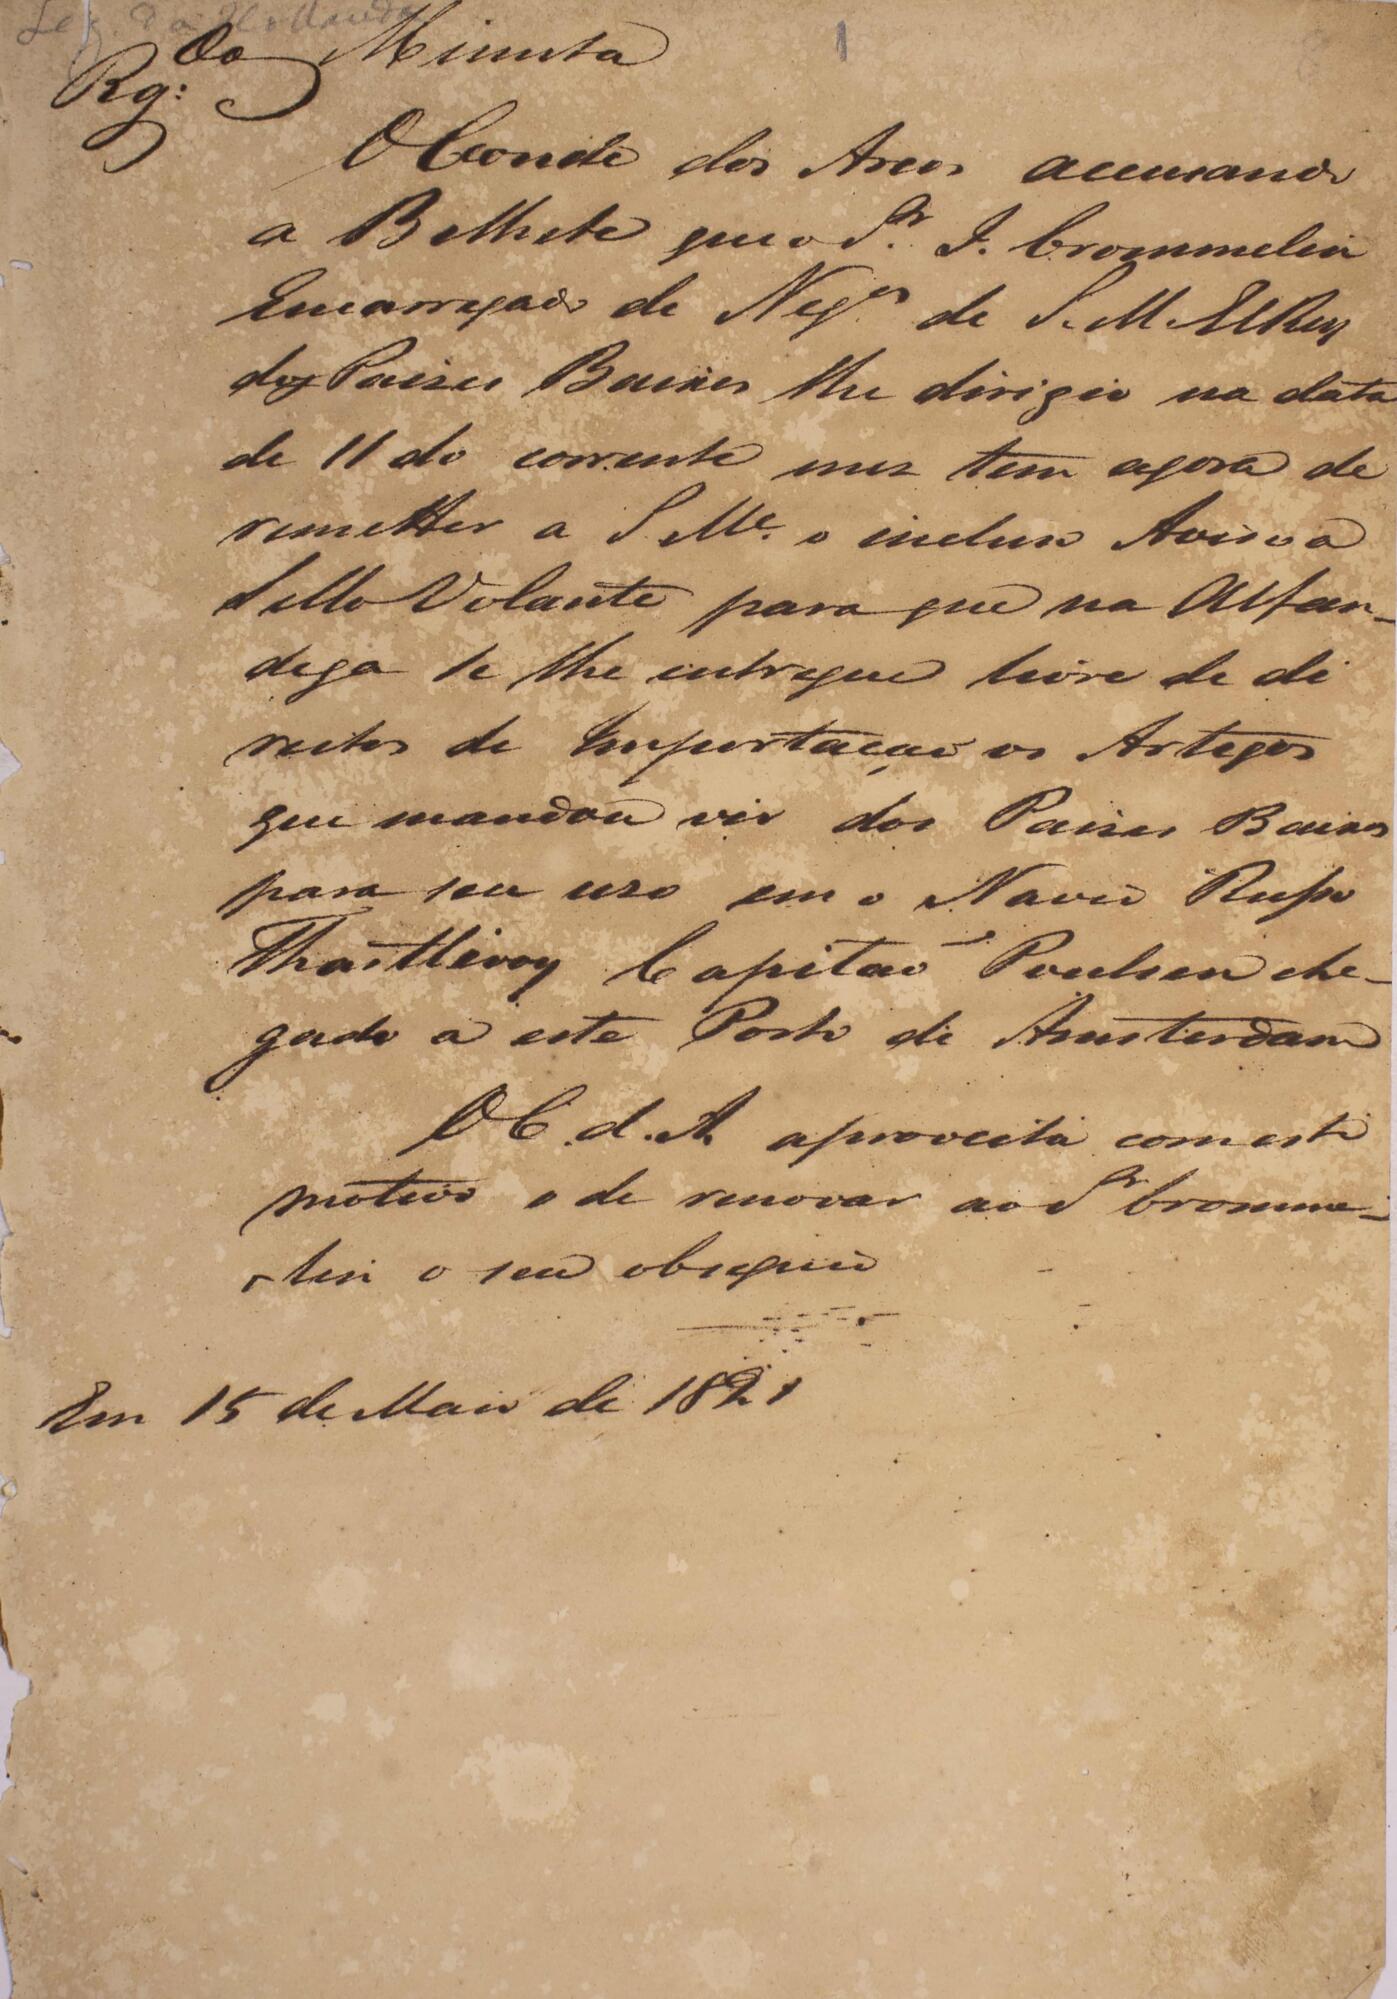 Leg. da Hollanda
1
Rg.do Minuta
O Conde dos Arcos accusando
a Bilhete que o Sr. J. Crommelin
Encarregado de Neg.os de S. M. ElRey
dos Paizes Baixos lhe dirigio na data
de 11 do corrente mez tem agora de
remetter a S Me. o incluso Aviso a
Sello Volante para que na Alfan-
dega se lhe entregue livre de di
reitos de Importaçaõ os Artegos
que mandou vir dos Paizes Baixos
para seu uzo em o Navio Russo
Capitaõ Poulsen che-
gado a este Porto de Amsterdam
O C. d. A. aproveita com este
motivo o de renovar ao Sr Cromme-
lin o seu obsequio
Em 15 de Maio de 1821